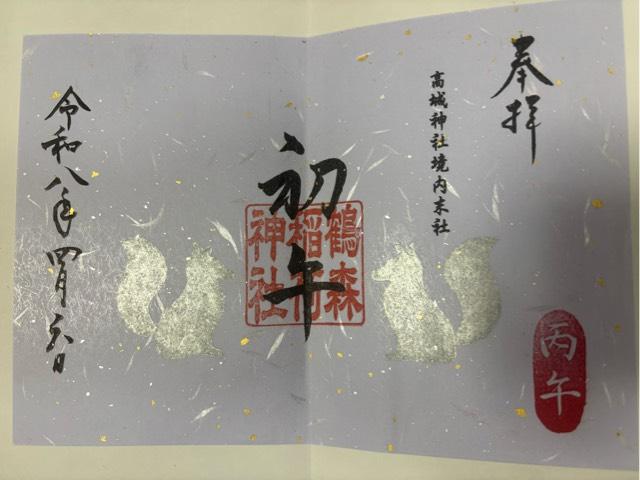 奉拝
高城神社境内末社
初午
鶴森
稲荷
神社
丙午
令和八年四月六日